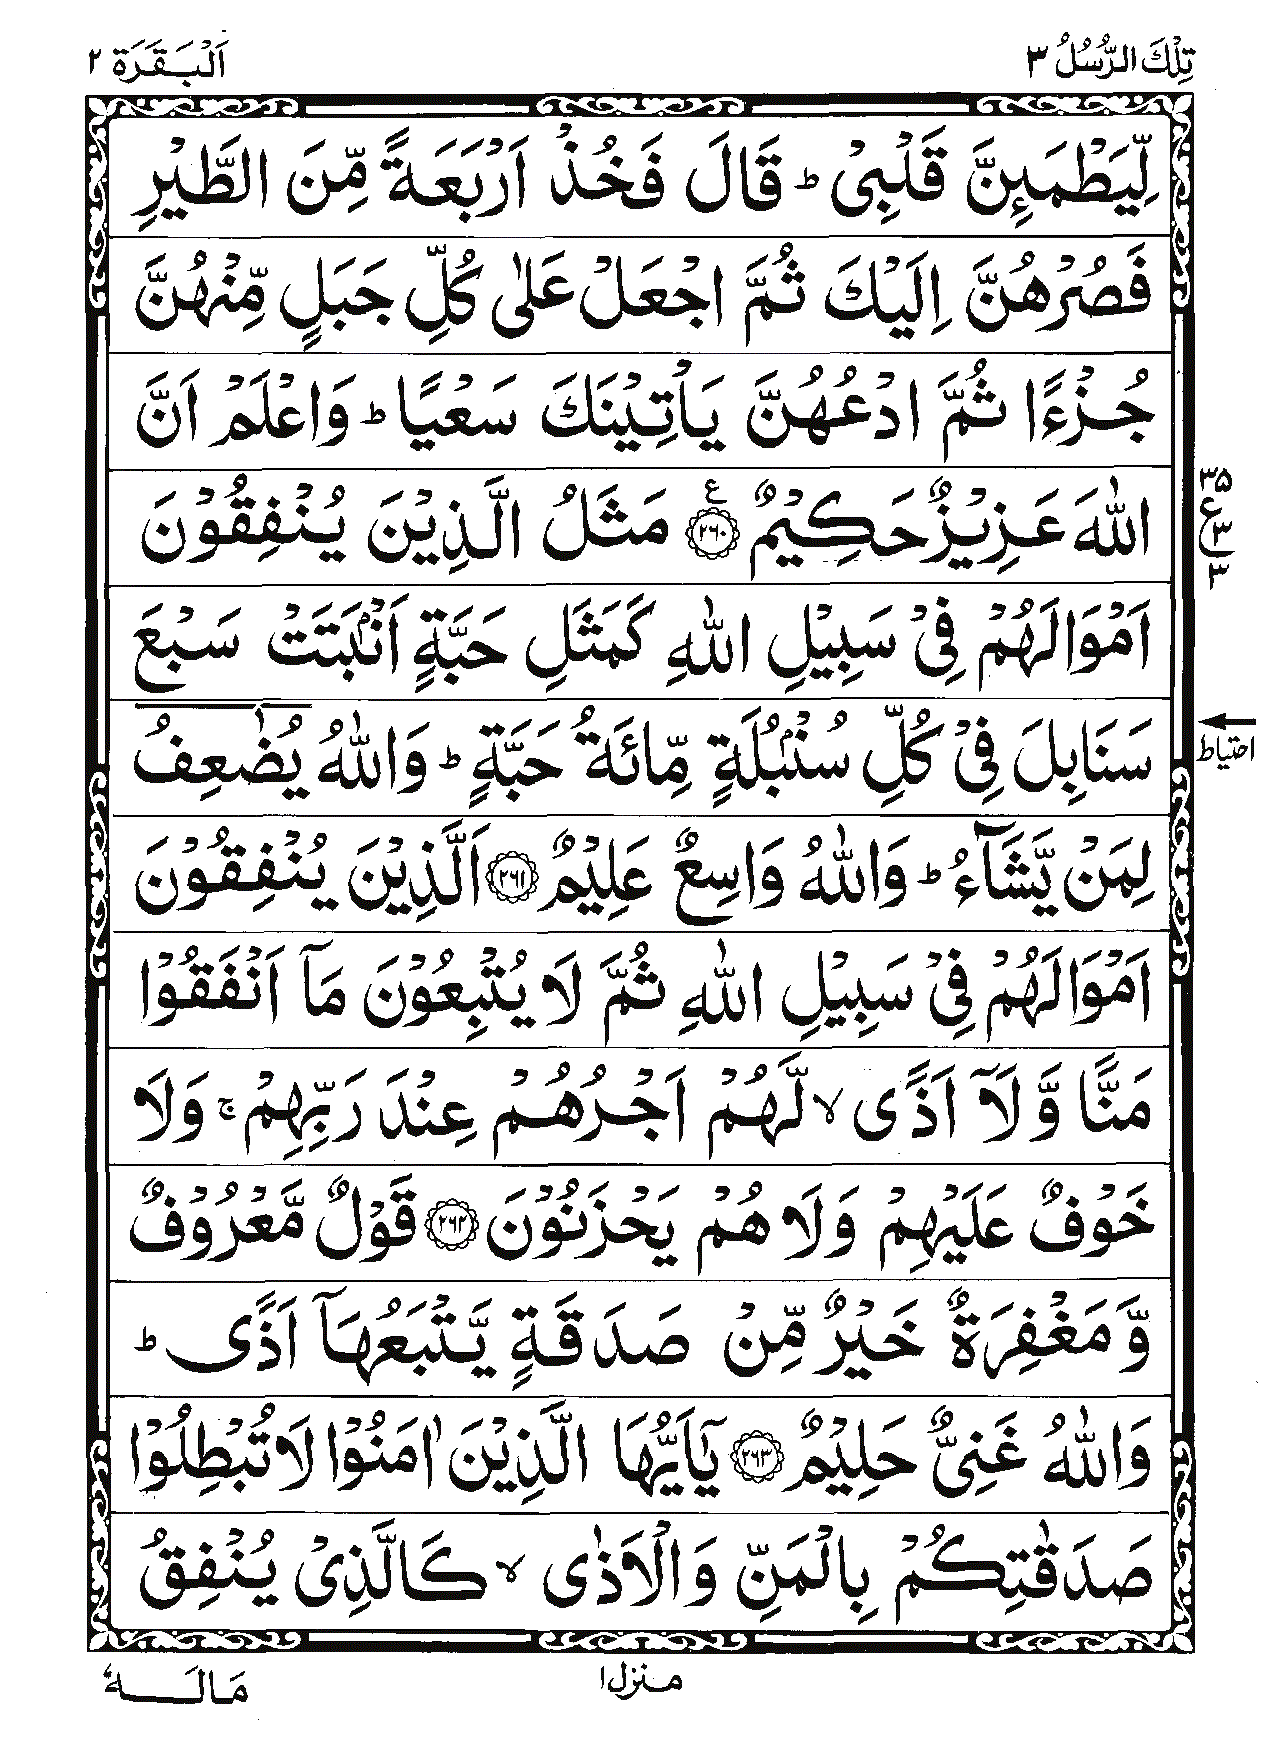 تِلْكَ الرُّسُلُ ٣
اَلْبَقَرَة ٢
لِّيَطْمَئِنَّ قَلْبِىْ ؕ قَالَ فَخُذْ اَرْبَعَةً مِّنَ الطَّيْرِ
فَصُرْهُنَّ اِلَيْكَ ثُمَّ اجْعَلْ عَلٰى كُلِّ جَبَلٍ مِّنْهُنَّ
جُزْءًا ثُمَّ ادْعُهُنَّ يَاْتِيْنَكَ سَعْيًا ؕ وَاعْلَمْ اَنَّ
اللّٰهَ عَزِيْزٌ حَكِيْمٌ ۝٢٦٠ ع مَثَلُ الَّذِيْنَ يُنْفِقُوْنَ
٣٥
ع
٣
٣
اَمْوَالَهُمْ فِىْ سَبِيْلِ اللّٰهِ كَمَثَلِ حَبَّةٍ اَنْۢبَتَتْ سَبْعَ
سَنَابِلَ فِىْ كُلِّ سُنْۢبُلَةٍ مِّائَةُ حَبَّةٍ ؕ وَاللّٰهُ يُضٰعِفُ
احتياط
لِمَنْ يَّشَآءُ ؕ وَاللّٰهُ وَاسِعٌ عَلِيْمٌ ۝٢٦١ اَلَّذِيْنَ يُنْفِقُوْنَ
اَمْوَالَهُمْ فِىْ سَبِيْلِ اللّٰهِ ثُمَّ لَا يُتْبِعُوْنَ مَآ اَنْفَقُوْا
مَنًّا وَّ لَآ اَذًى ۙ لَّهُمْ اَجْرُهُمْ عِنْدَ رَبِّهِمْ ۚ وَلَا
خَوْفٌ عَلَيْهِمْ وَلَا هُمْ يَحْزَنُوْنَ ۝٢٦٢ قَوْلٌ مَّعْرُوْفٌ
وَّمَغْفِرَةٌ خَيْرٌ مِّنْ صَدَقَةٍ يَّتْبَعُهَآ اَذًى ؕ
وَاللّٰهُ غَنِىٌّ حَلِيْمٌ ۝٢٦٣ يٰٓاَيُّهَا الَّذِيْنَ اٰمَنُوْا لَا تُبْطِلُوْا
صَدَقٰتِكُمْ بِالْمَنِّ وَالْاَذٰى ۙ كَالَّذِىْ يُنْفِقُ
منزل ١
مَالَهٗ